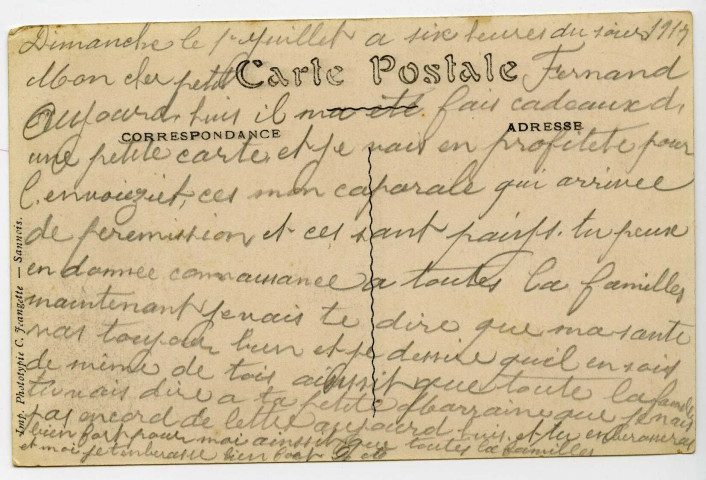 Dimanche le 1er Juillet a six heures du soire 1917
Mon cher petit Fernand
Carte Postale
aujourd,huis il ma été fais cadeaux d,
CORRESPONDANCE
ADRESSE
une petite carte, et je vais en profitete pour
l,envoiezict, ces mon caporale qui arrivee
de feremission, et ces sant paiys. tu peux
en donnee connaissance a toutes la familles
maintenant je vais te dire que ma sante
vas toujour bien et je dessire quil en sois
de même de tois ainssit que toute la famille
tu vais dire a ta petite Marraine que je nais
pas encord de lettre aujourd,huis, et tu enberasseras
bien fort pour moi ainssit que toutes la familles
et moi je t'enberasse bien fort
Imp. Phototypie C. Jeangette — Sannois.